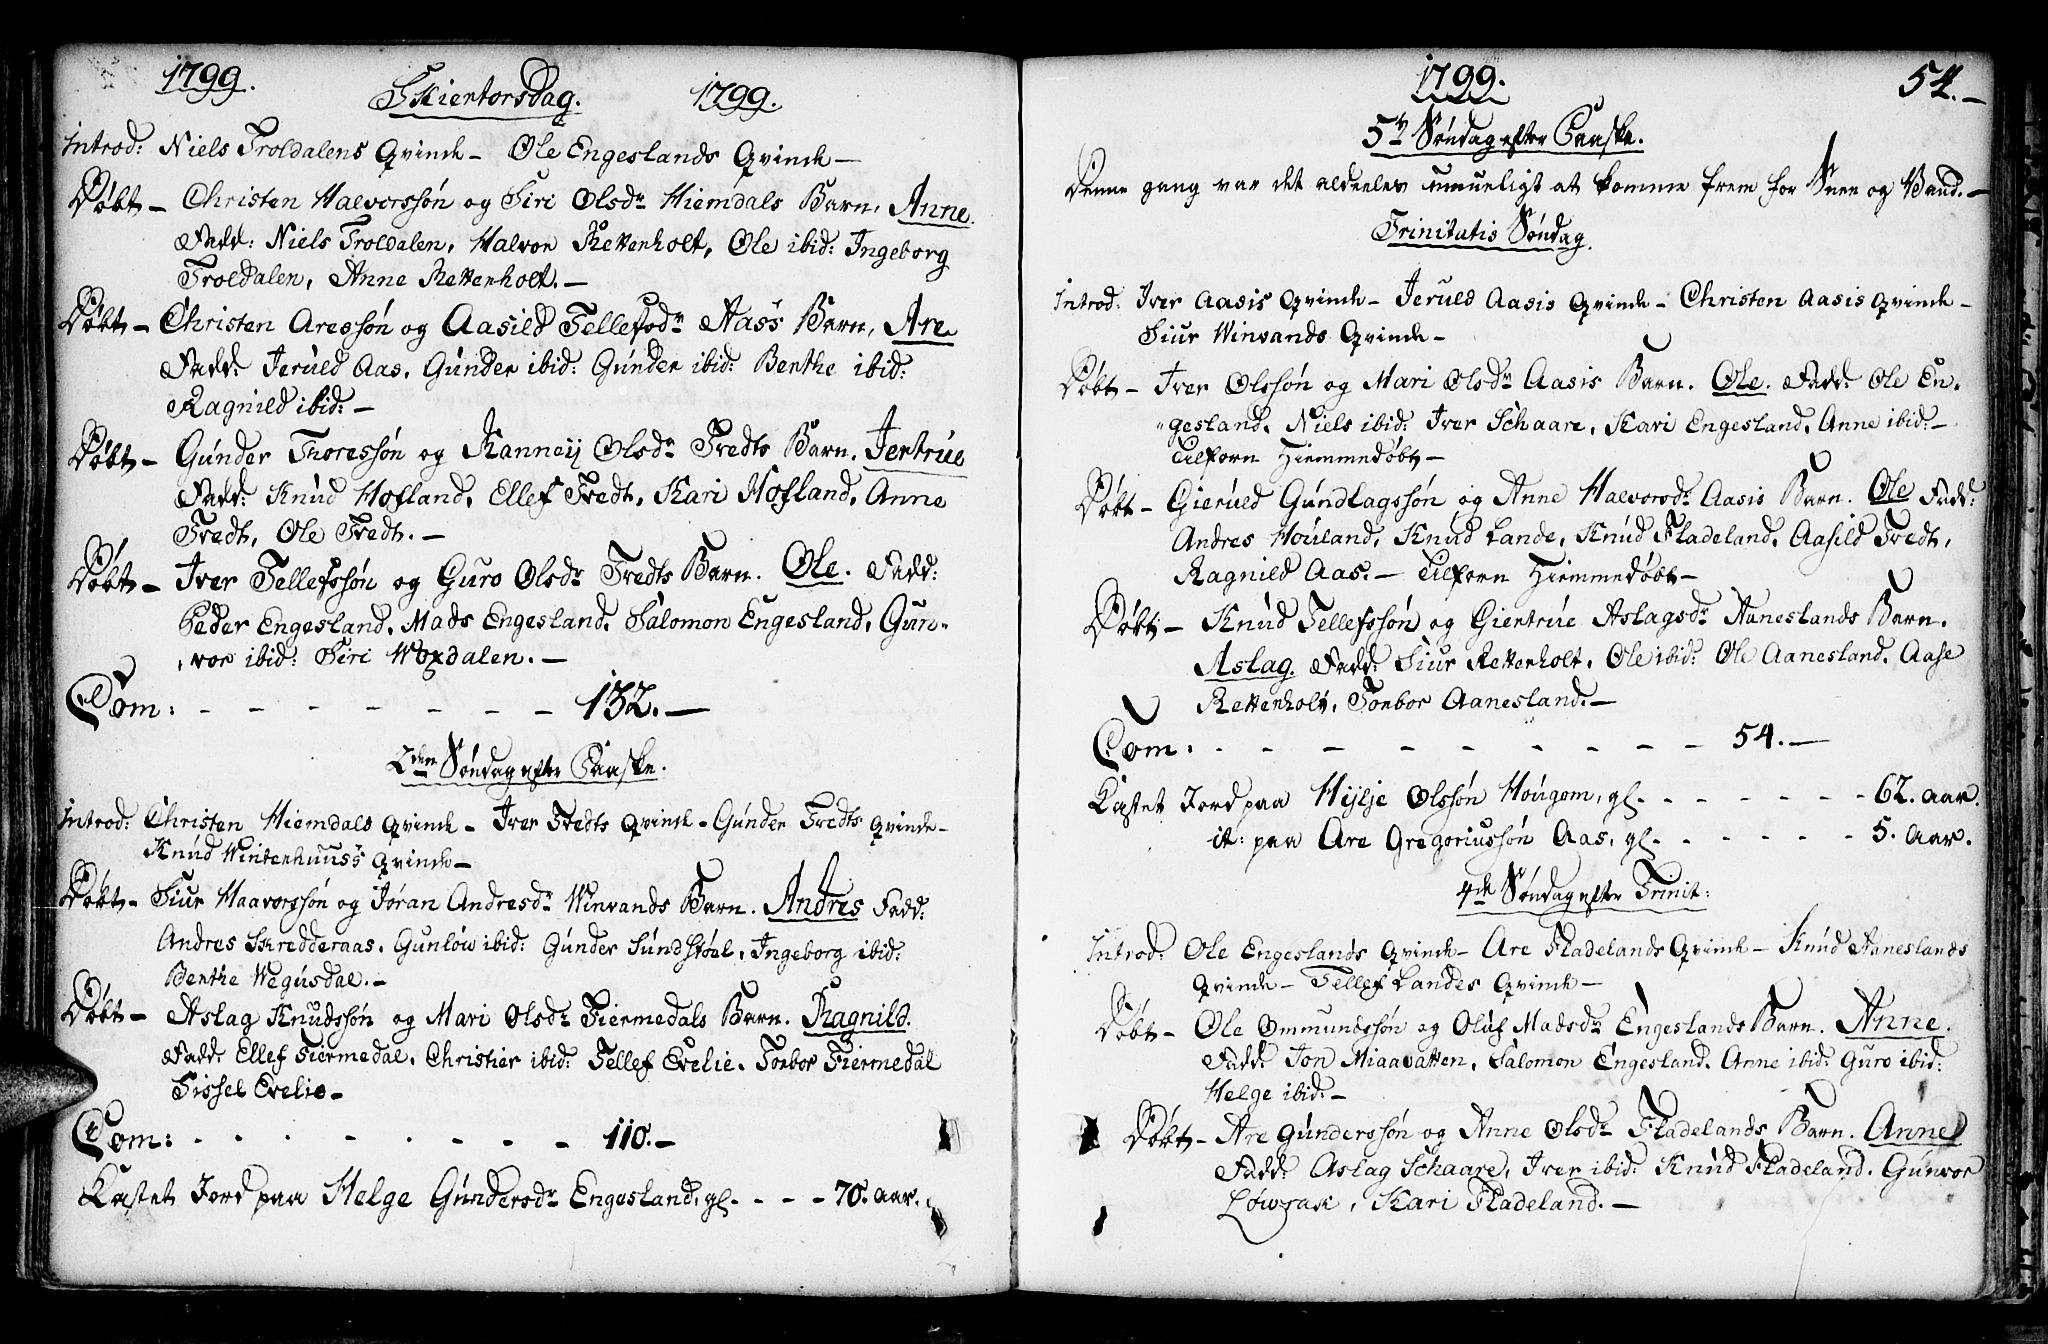 1799.
Skiertorsdag. 1799.
Introd: Niels Troldalens Qvinde – Ole Engeslands Qvinde –
Døbt – Christen Halvorssøn og Siri Olsdr Hiemdals Barn, Anne.
Fadd: Niels Troldalen, Halvor Rettenholt, Ole ibid: Ingeborg
Troldalen, Anne Rettenholt. –
Døbt – Christen Aressøn og Aasild Tellefsdr Aass Barn, Are
Fadd: Jeruld Aas, Gunder ibid: Gunder ibid: Benthe ibid:
Ragnild ibid: –
Døbt – Gunder Thoressøn og Ranneij Olsdr Tredts Barn. Jertrue
Fadd: Knud Hofland, Ellef Tredt, Kari Hofland, Anne
Tredt, Ole Tredt. –
Døbt – Iver Tellefssøn og Guro Olsdr Tredts Barn. Ole. Fadd:
Peder Engesland, Mads Engesland, Salomon Engesland, Gun-
vor ibid: Siri Woxdalen. –
Com: – – – – – – – 132. –
2den Søndag efter Paaske.
Introd: Christen Hiemdals Qvinde – Iver Tredts Qvinde – Gunder Tredts Qvinde –
Knud Winterhuus's Qvinde –
Døbt – Siur Haavorssøn og Jøran Andresdr Winvands Barn. Andres Fadd:
Andres Skredderaas, Gunlow ibid: Gunder Sundstøel, Ingeborg ibid:
Benthe Wegusdal. –
Døbt – Aslag Knudssøn og Mari Olsdr Fiermedals Barn. Ragnild.
Fadd: Ellef Fiermedal, Christier ibid: Tellef Evelie, Tonbor Fiermedal
Sissel Evelie –
Com: – – – – – – – – 110. –
Kastet Jord paa Helge Gundersdr Engesland, gl. – – – – 70. aar.
1799. 54. –
5te Søndag efter Paaske.
Denne gang var det aldeeles umueligt at komme frem for Snee og Vand. –
Trinitatis Søndag.
Introd. Iver Aasis Qvinde – Jeruld Aasis Qvinde – Christen Aasis Qvinde –
Siur Winvands Qvinde –
Døbt – Iver Olssøn og Mari Olsdr Aasis Barn. Ole. Fadd: Ole En-
gesland, Niels ibid: Iver Schaare, Kari Engesland, Anne ibid: –
Tilforn Hiemmedøbt –
Døbt – Gieruld Gundlagssøn og Anne Halvorsdr Aasis Barn. Ole Fadd:
Andres Houland, Knud Lande, Knud Fladeland, Aasild Tredt,
Ragnild Aas. – Tilforn Hiemmedøbt –
Døbt – Knud Tellefssøn og Giertrue Aslagsdr Aaneslands Barn.
Aslag. Fadd: Siur Rettenholt, Ole ibid: Ole Aanesland, Aase
Rettenholt, Tonbor Aanesland. –
Com: – – – – – – – – – 54. –
Kastet Jord paa Hylje Olssøn Hougom, gl. – – – – – – 62. aar.
it: paa Are Gregoriussøn Aas, gl. – – – – – – 5. aar.
4de Søndag efter Trinit:
Introd: Ole Engeslands Qvinde – Are Fladelands Qvinde – Knud Aaneslands
Qvinde – Tellef Landes Qvinde –
Døbt – Ole Ommundssøn og Oluf Madsdr Engeslands Barn. Anne.
Fadd: Jon Miaavatten, Salomon Engesland, Anne ibid: Guro ibid:
Helge ibid: –
Døbt – Are Gunderssøn og Anne Olsdr Fladelands Barn. Anne
Fadd: Aslag Schaare, Iver ibid: Knud Fladeland, Gunvor
Kari Fladeland. –